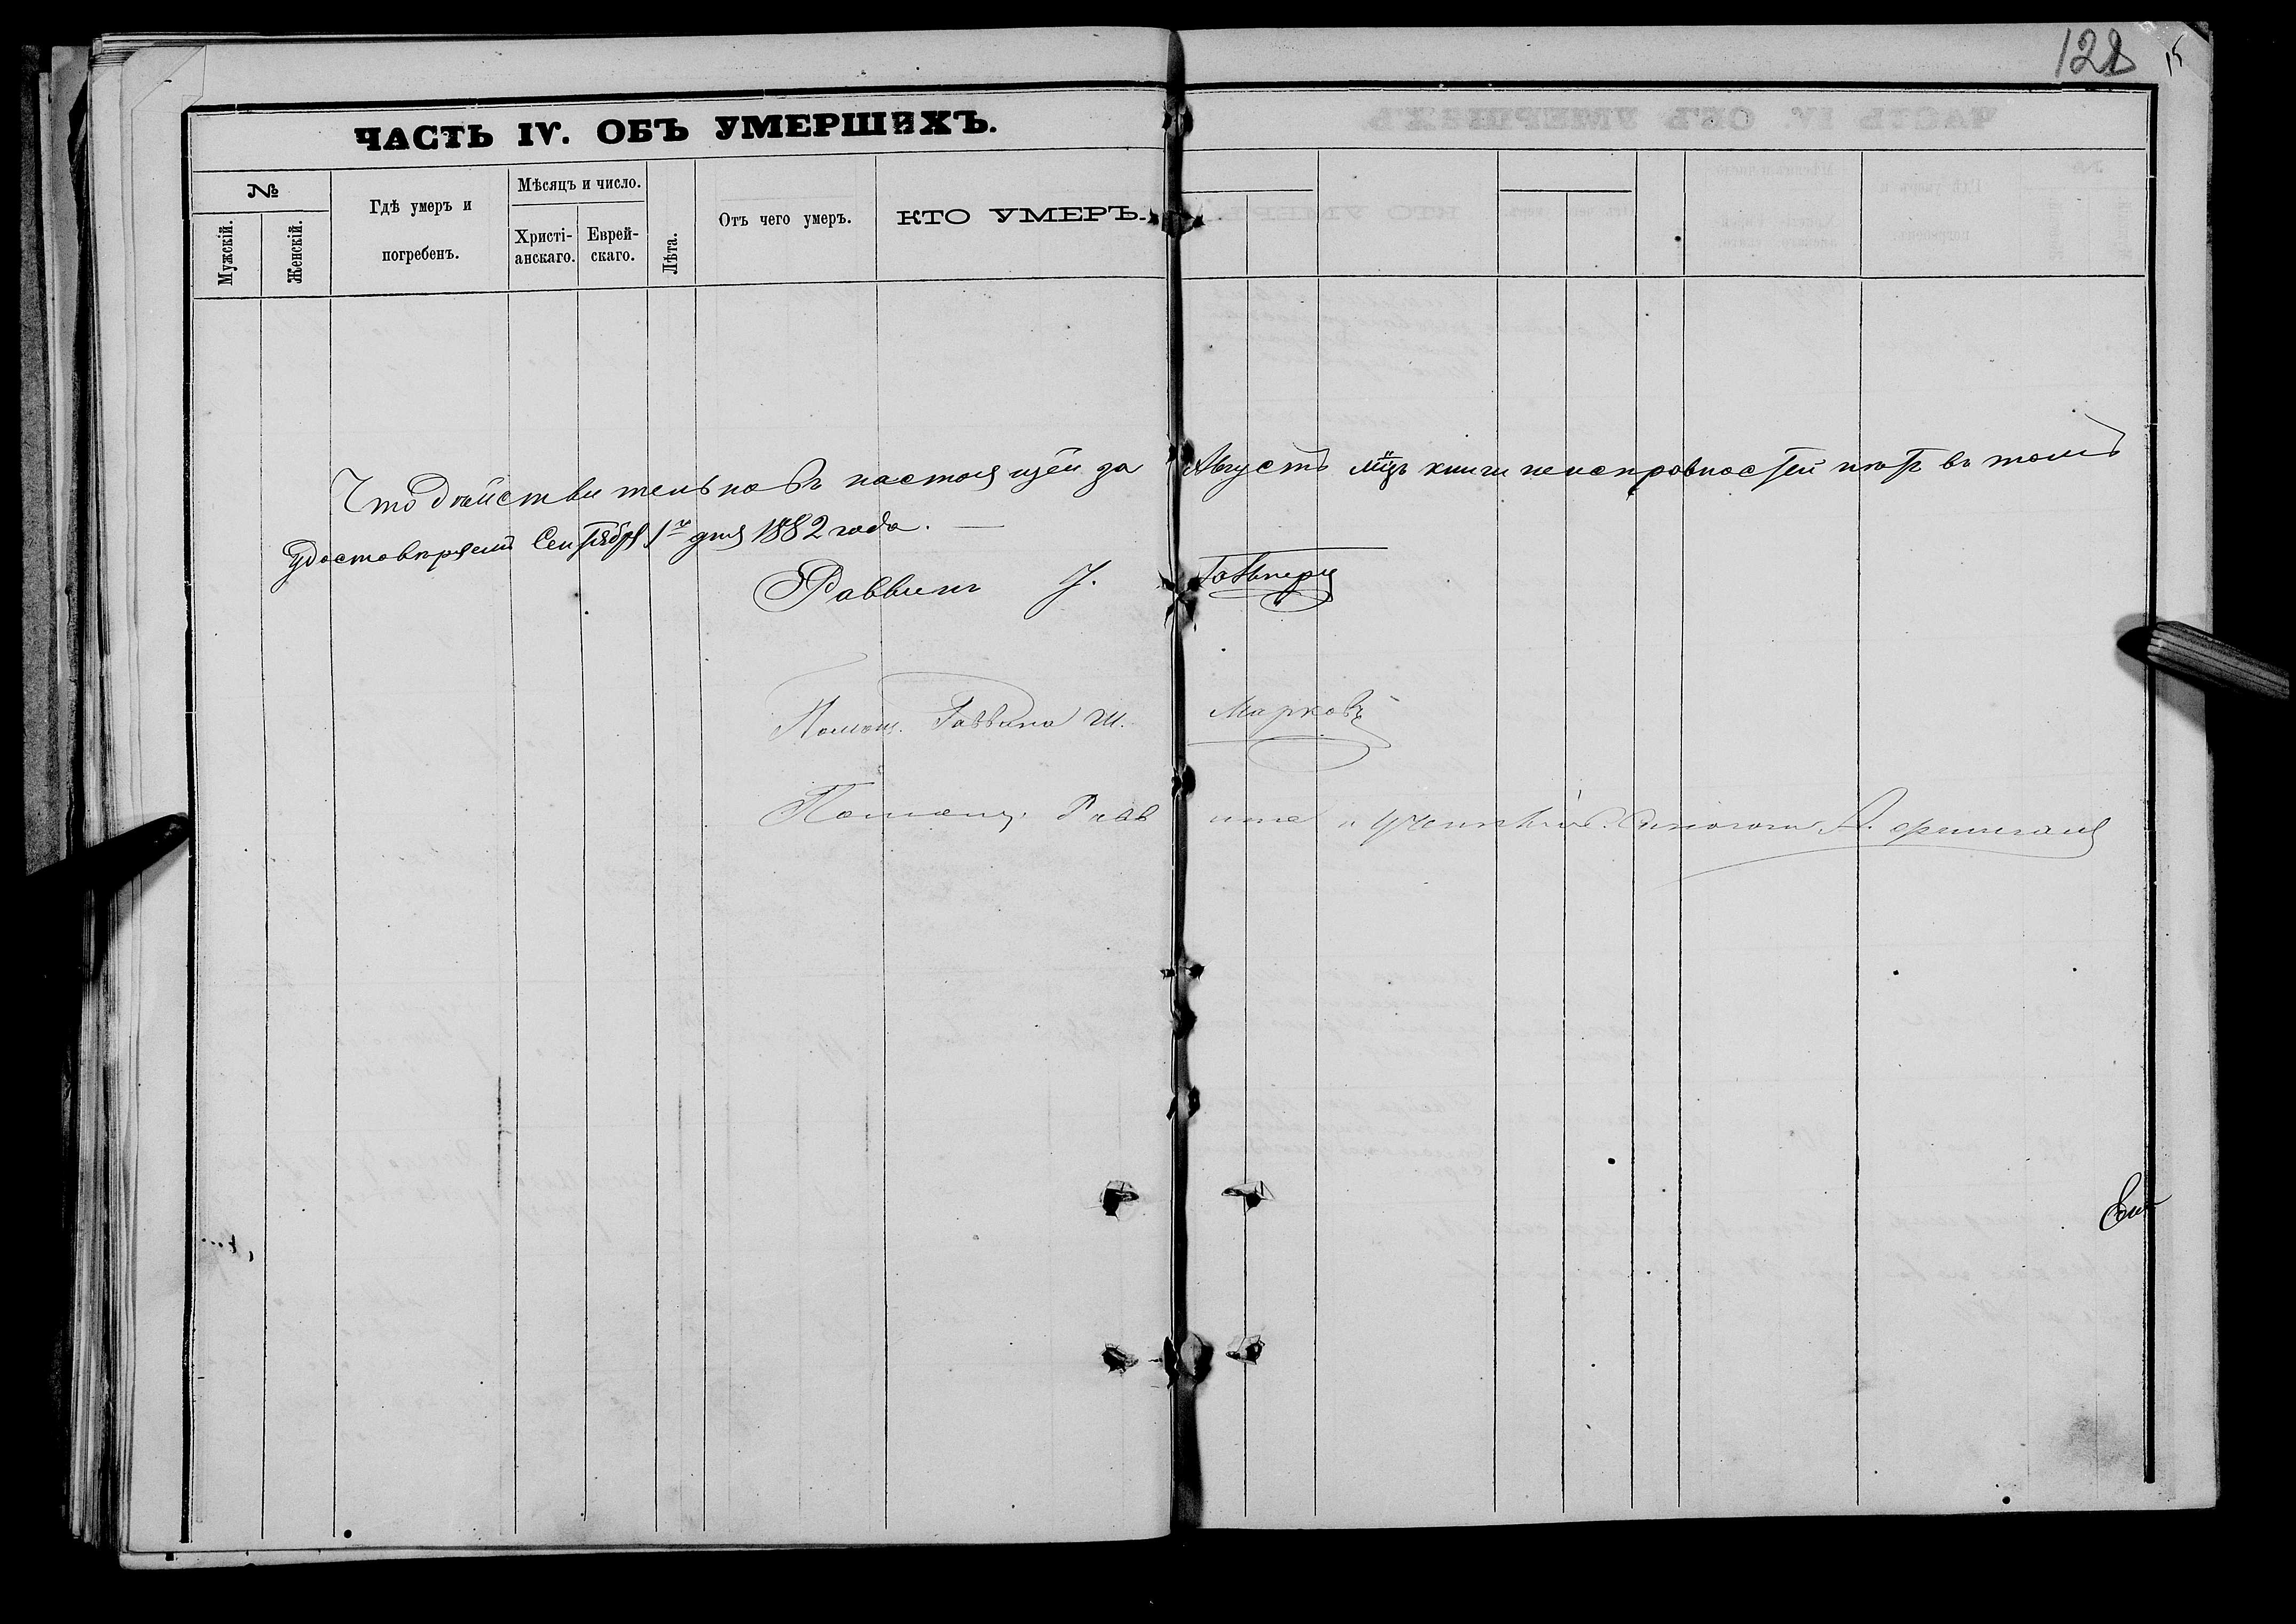 128 15
ЧАСТЬ IV. ОБЪ УМЕРШИХЪ.
№
Мужскій.
Женскій.
Гдѣ умеръ и
погребенъ.
Мѣсяцъ и число.
Христі-
анскаго.
Еврей-
скаго.
Лѣта.
Отъ чего умеръ.
КТО УМЕРЪ.
Что дѣйствительно въ настоящей за Августъ мцъ книги неисправностей нѣтъ въ томъ
удостовѣряемъ Сентября 1го дня 1882 года. —
Раввинъ
Помощ. Раввина Ш. Марковъ
Помощ. Раввина и